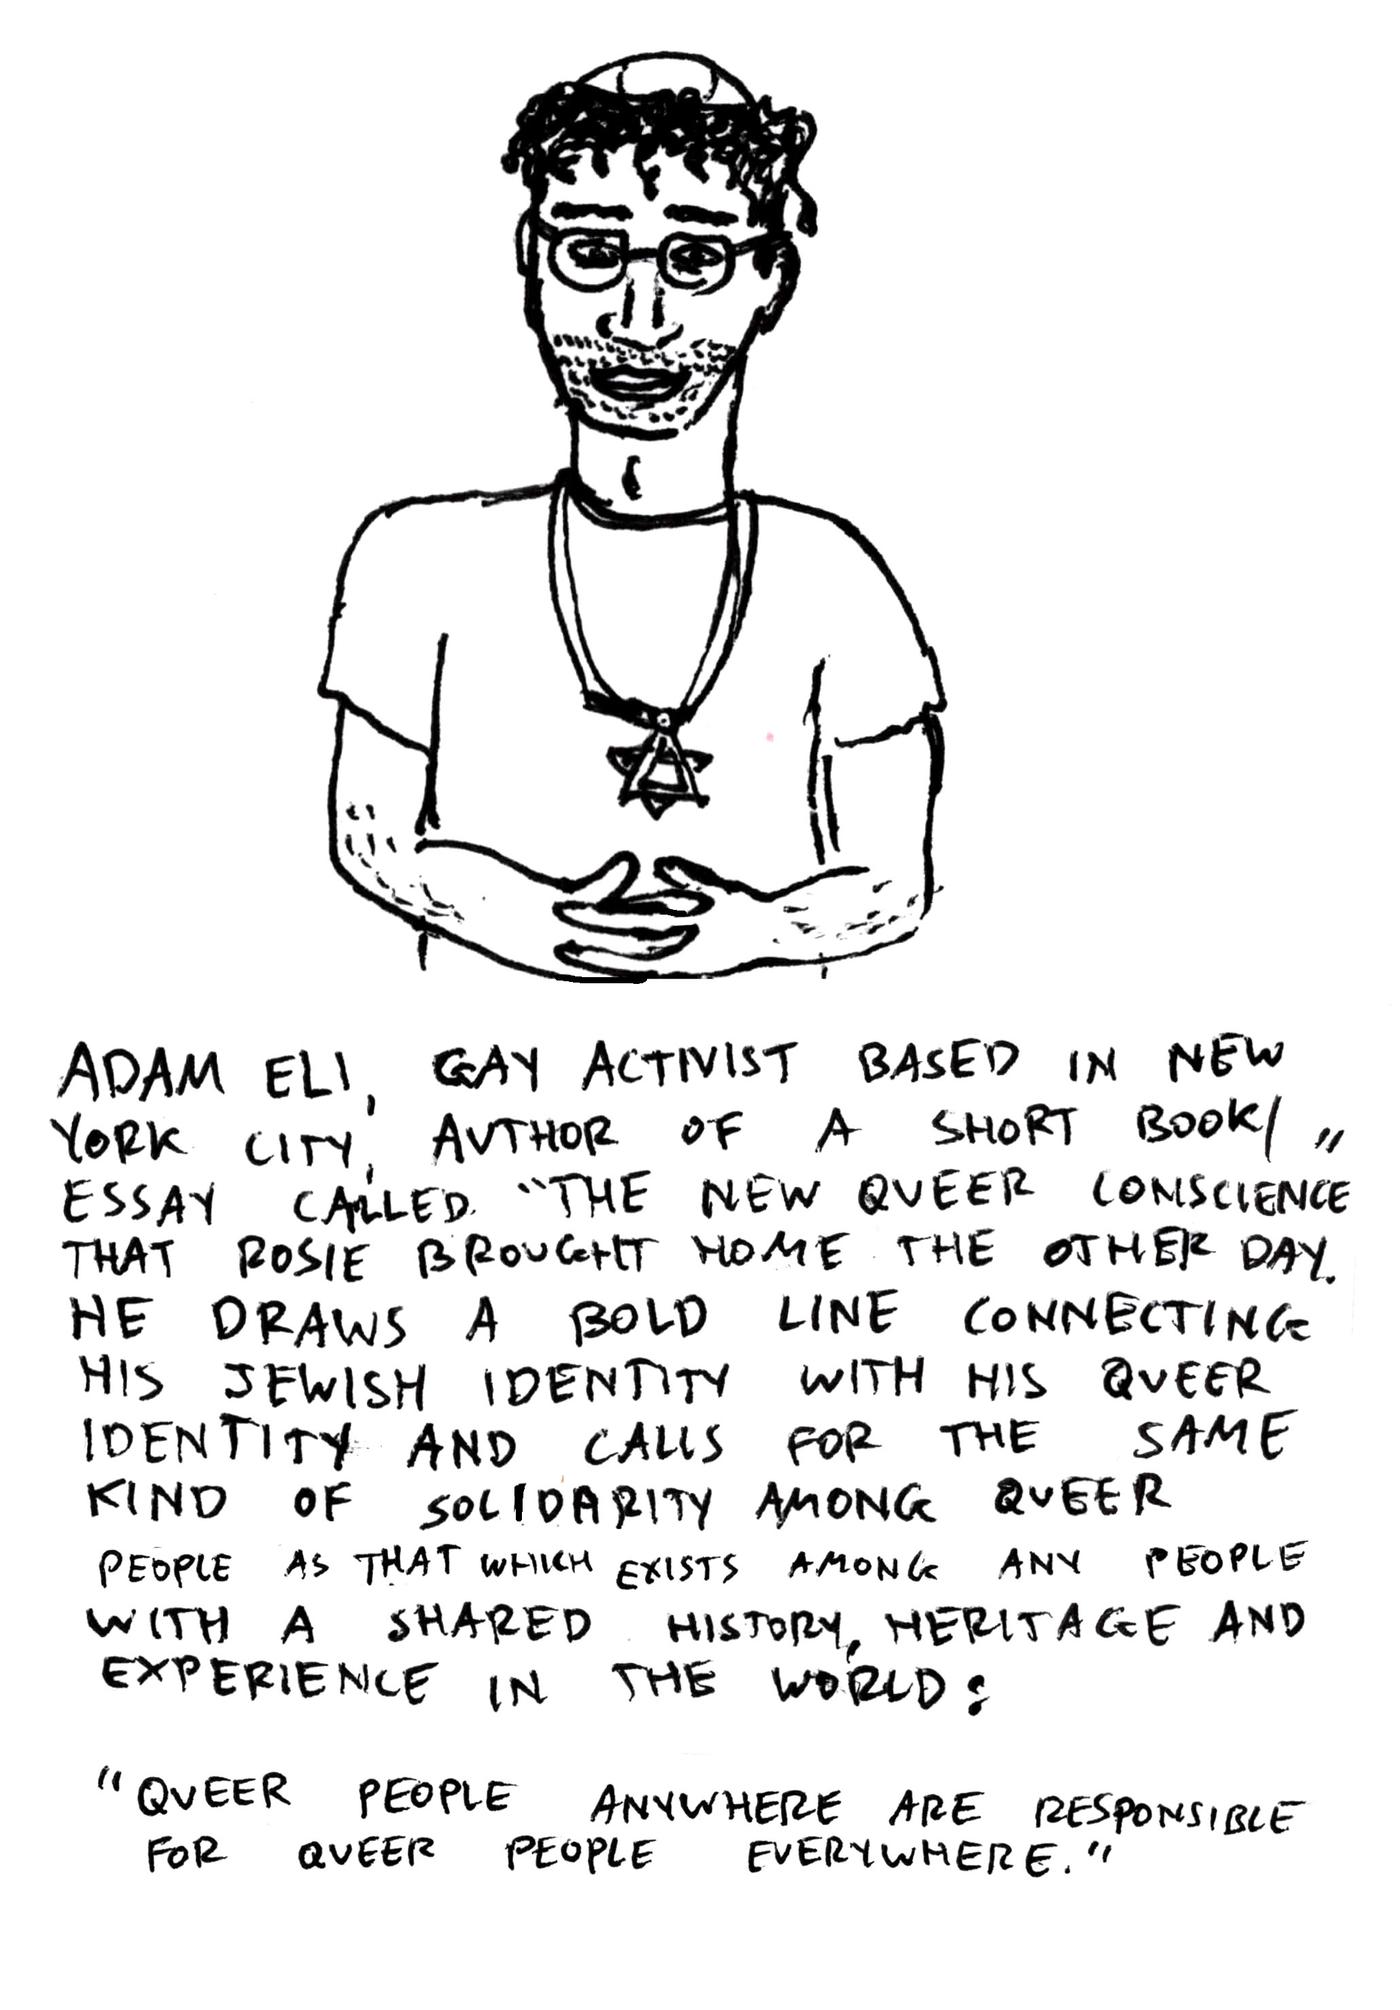 ADAM ELI, GAY ACTIVIST BASED IN NEW
YORK CITY, AUTHOR OF A SHORT BOOK/
ESSAY CALLED "THE NEW QUEER CONSCIENCE"
THAT ROSIE BROUGHT HOME THE OTHER DAY.
HE DRAWS A BOLD LINE CONNECTING
HIS JEWISH IDENTITY WITH HIS QUEER
IDENTITY AND CALLS FOR THE SAME
KIND OF SOLIDARITY AMONG QUEER
PEOPLE AS THAT WHICH EXISTS AMONG ANY PEOPLE
WITH A SHARED HISTORY, HERITAGE AND
EXPERIENCE IN THE WORLD:
"QUEER PEOPLE ANYWHERE ARE RESPONSIBLE
FOR QUEER PEOPLE EVERYWHERE."